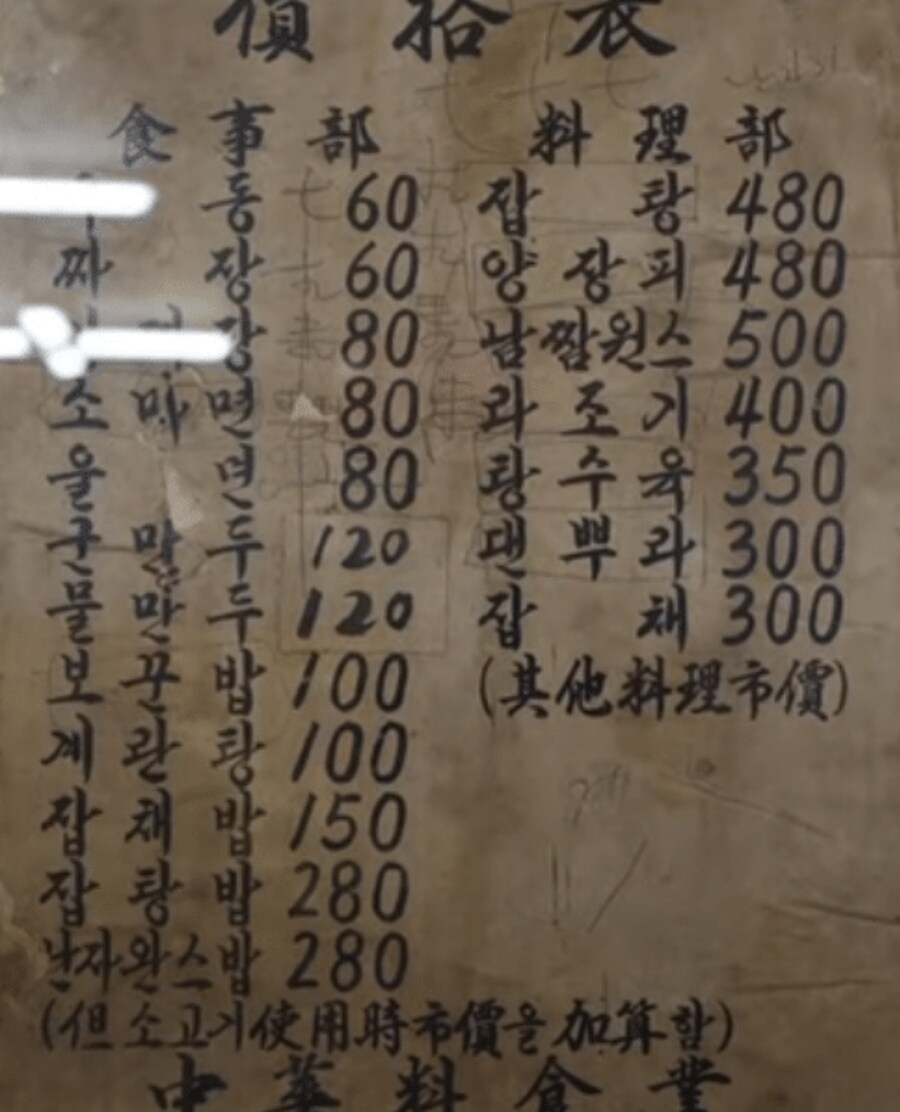 價拾表
食事部
동 60
짜장 60
장 80
소마면 80
울면 80
군만두 120
물만두 120
보꾸밥 100
계란탕 100
잡채밥 150
잡탕밥 280
난자완스밥 280
(但소고기使用時市價을加算함)
料理部
잡탕 480
양장피 480
남짬원스 500
라조기 400
탕수육 350
덴뿌라 300
잡채 300
(其他料理市價)
中華料食業